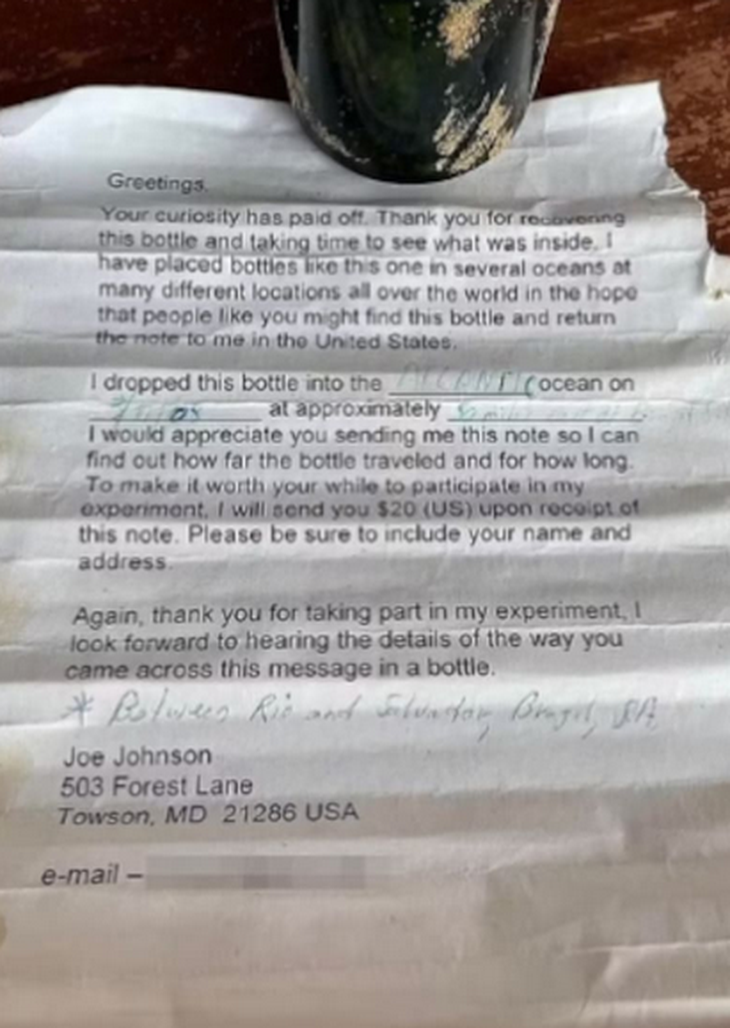 Greetings,
Your curiosity has paid off. Thank you for recovering
this bottle and taking time to see what was inside. I
have placed bottles like this one in several oceans at
many different locations all over the world in the hope
that people like you might find this bottle and return
the note to me in the United States.
I dropped this bottle into the ATLANTIC ocean on
at approximately
I would appreciate you sending me this note so I can
find out how far the bottle traveled and for how long.
To make it worth your while to participate in my
experiment, I will send you $20 (US) upon receipt of
this note. Please be sure to include your name and
address.
Again, thank you for taking part in my experiment, I
look forward to hearing the details of the way you
came across this message in a bottle.
* Between Rio and Salvador, Brazil,
Joe Johnson
503 Forest Lane
Towson, MD 21286 USA
e-mail –